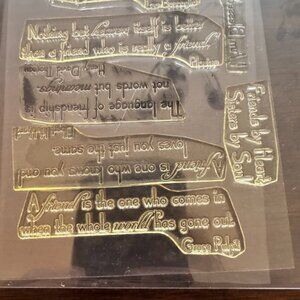 Nothing but heaven itself is better
than a friend who is really a friend.
Plautus
The language of friendship is
not words but meanings.
Henry David Thoreau
A friend is one who knows you and
loves you just the same.
A friend is the one who comes in
when the whole world has gone out.
Grace Pulpit
Friends by Heart
Sisters by Soul